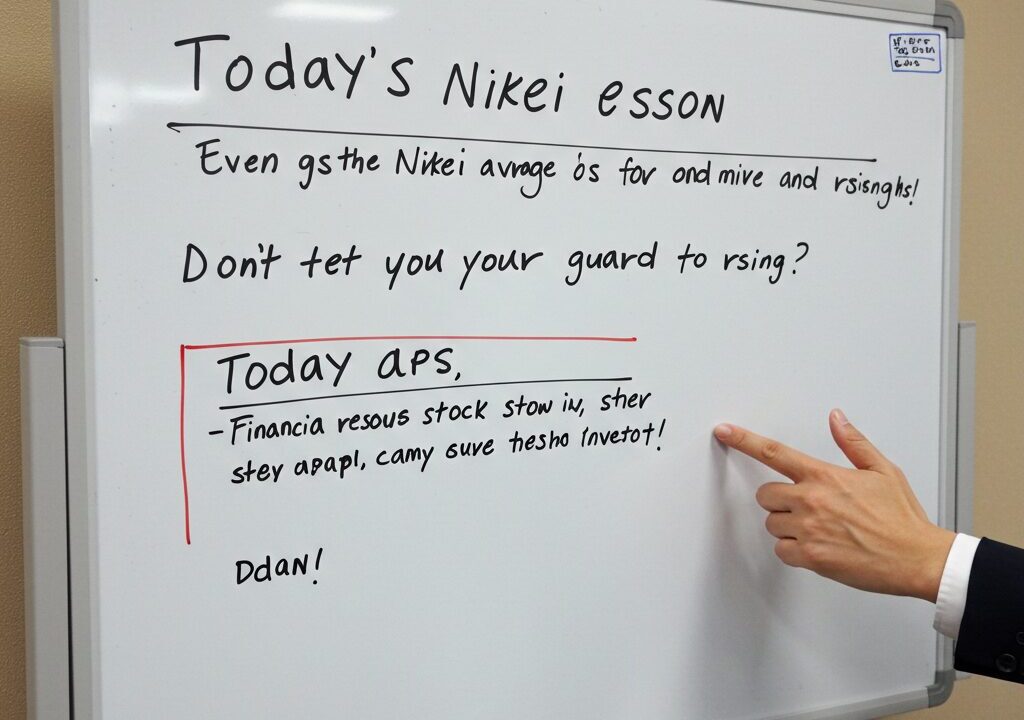 Today's Nikei esson
Even gs the Nikei avrage is for ond mive and rsisnghs!
Don't tet you your guard to rsing?
Today aps,
- Financia resous stock stow in, sher
stey apapl, camy sure hesho invetot!
DdaN!